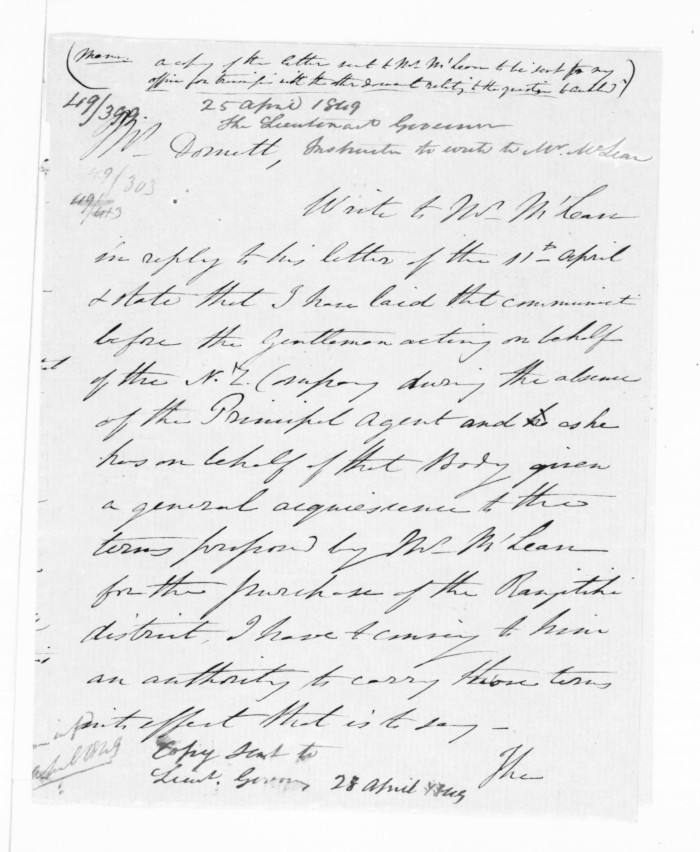 (Mem: a copy of the letter sent to Mr McLean to be sent for my
office for transmission with the other documents relating to the question
49/399
25 April 1849
The Lieutenant Governor
Mr Domett, Instruction to write to Mr. McLean
49/303
49/443
Write to Mr McLean
in reply to his letter of the 11th April
& state that I have laid that communict
before the Gentleman acting on behalf
of the N.Z. Company during the absence
of the Principal Agent and as he
has on behalf of that Body given
a general acquiescence to the
terms proposed by Mr McLean
for the purchase of the Rangitiki
district, I have to convey to him
an authority to carry those terms
into effect that is to say -
Copy sent to
Lieut. Governor 28 April 1849
The